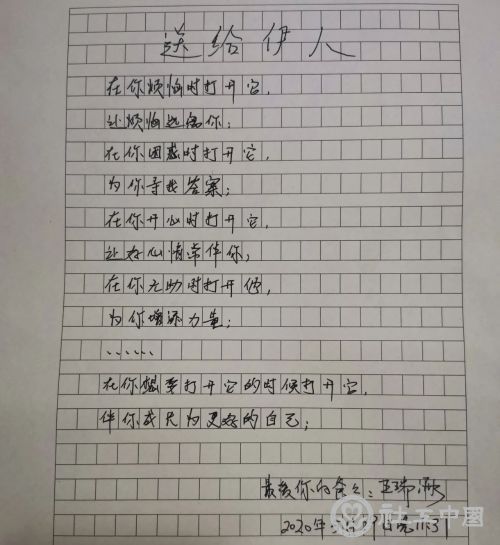 送给伊人
在你烦恼时打开它,
让烦恼远离你;
在你困惑时打开它,
为你寻找答案;
在你开心时打开它,
让好心情常伴你;
在你无助时打开他,
为你增添力量;
......
在你想要打开它的时候打开它,
伴你成长为更好的自己;
最爱你的爸爸:王瑞
2020年
社工中國